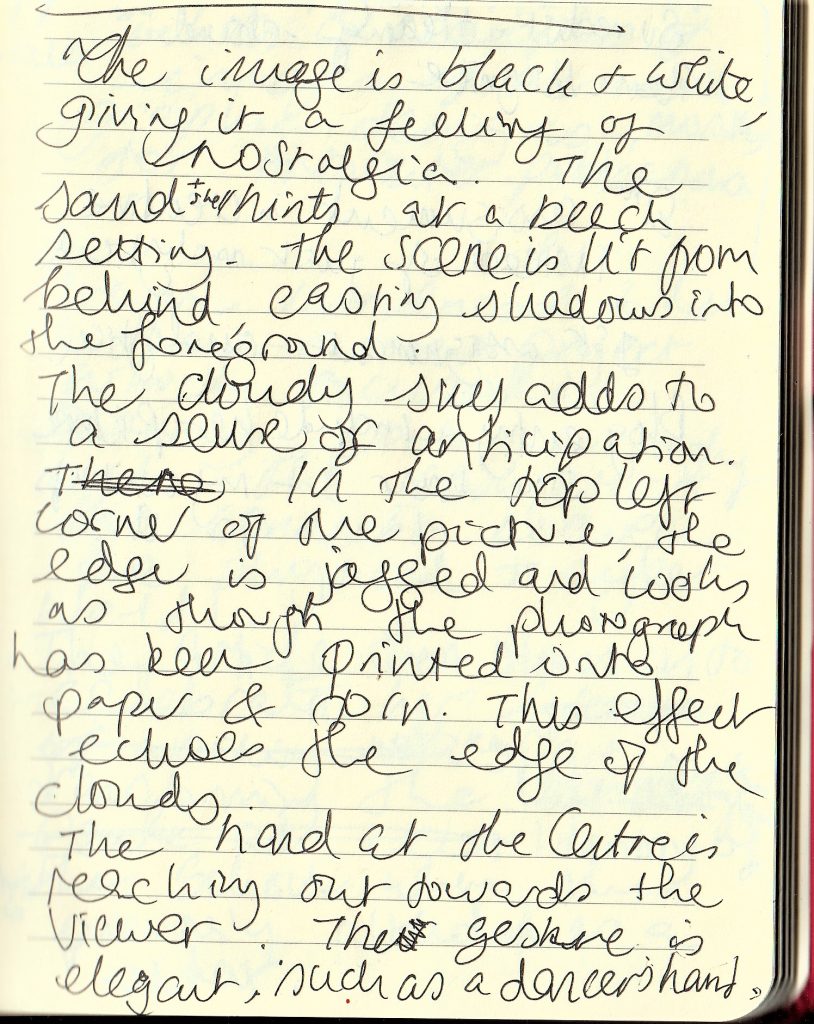 The image is black & white,
giving it a feeling of
nostalgia. The
sand + shell hints at a beach
setting. The scene is lit from
behind, casting shadows into
the foreground.
The cloudy sky adds to
a sense of anticipation.
There In the top left
corner of the picture, the
edge is jagged and looks
as though the photograph
has been printed onto
paper & torn. This effect
echoes the edge of the
clouds.
The hand at the centre is
reaching out towards the
viewer. The gesture is
elegant, such as a dancers hand.